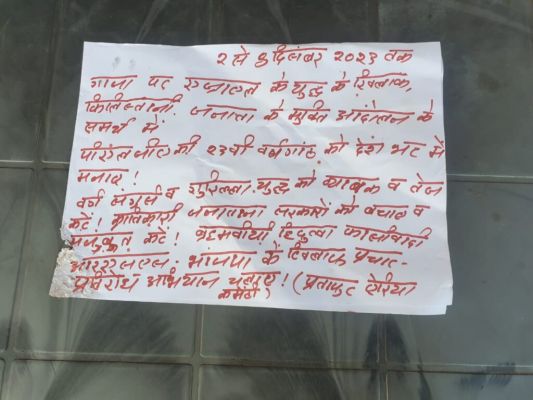 2 से 8 दिसंबर 2023 तक
गाजा पर इजराएल के युद्ध के खिलाफ,
फिलिस्तीनी जनता के मुक्ति आंदोलन के
समर्थ में
पीएलजीए की 23वी वर्षगांठ को देश भर में
मनाए!
वर्ग संघर्ष व गुरिल्ला युद्ध को व्यापक व तेज
करें! क्रांतिकारी जनताना सरकारों को बचाव व
मजबुत करें! ब्राह्मणवादी हिंदुत्व फासीवादी
आरएसएस. भाजपा के खिलाफ प्रचार-
प्रतिरोध अभियान चलाए! (प्रतापुर एरिया
कमेटी)